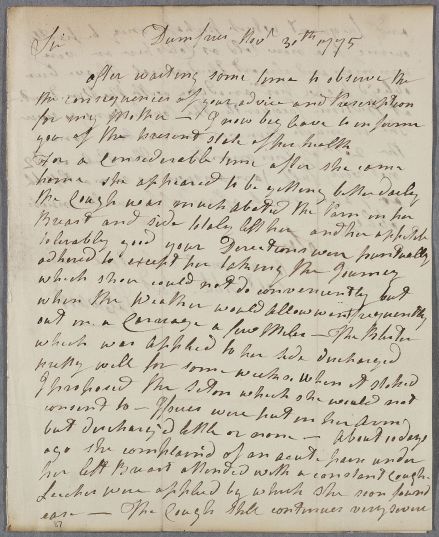 Sir Dumfries Novr 30th 1775
After waiting some time to observe the
the consequences of your advice and Prescription
for my Mother — I now beg leave to inform
you of the present state of her health
For a considerable time after she came
home she appeared to be getting better daily
the Cough was much abated the Pain in her
Breast and side totaly left her and her appetite
tolerably good your Directions were punctually
adhered to except her taking the Journey
which shou could not do conveniently but
when the Weather would allow went frequently
out in a Carriage a few Miles — The Blister
which was applied to her side discharged
pretty well for some weeks, when it stoped
I proposed the Seton which she would not
consent to — Issues were put in her Arms
but discharg'd little or none — About 10 days
ago she complained of an acute pain under
her left Breast attended with a constant Cough
Leeches were applied by which she soon found
ease — The Cough still continues very severe